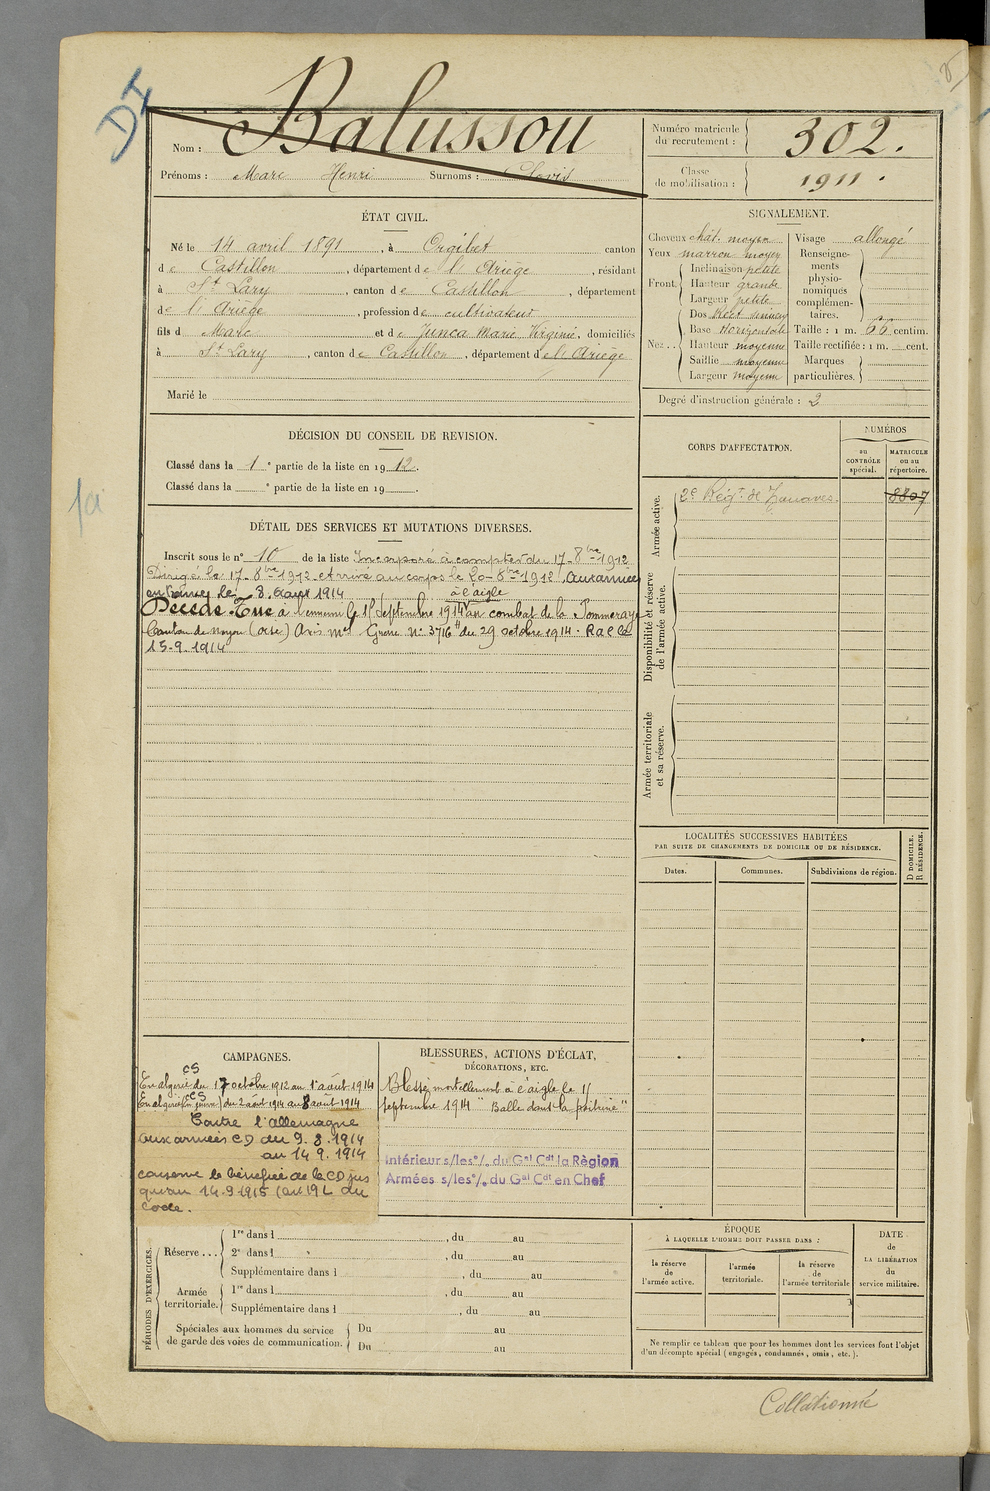 DI
Nom : Balussou
Prénoms : Marc Henri Surnoms : Clovis
Numéro matricule du recrutement : 302.
Classe de mobilisation : 1911.
ÉTAT CIVIL.
Né le 14 avril 1891, à Orgibet canton
de Castillon, département de l'Ariège, résidant
à St Lary, canton de Castillon, département
de l'Ariège, profession de cultivateur
fils de Marc et de Junca Marie Virginie, domiciliés
à St Lary, canton de Castillon, département de l'Ariège
Marié le
SIGNALEMENT.
Cheveux chât. moyen
Yeux marron moyen
Front. Inclinaison petite
Hauteur grande
Largeur petite
Nez.. Dos Rect
Base Horizontale
Hauteur moyenne
Saillie moyenne
Largeur moyenne
Visage allongé
Renseignements physionomiques complémentaires.
Taille : 1 m. 66 centim.
Taille rectifiée : 1 m. cent.
Marques particulières.
Degré d'instruction générale : 2
DÉCISION DU CONSEIL DE REVISION.
Classé dans la 1e partie de la liste en 1912.
Classé dans la e partie de la liste en 19 .
CORPS D'AFFECTATION.
NUMÉROS
au CONTRÔLE spécial.
MATRICULE ou au répertoire.
Armée active.
2e Régt de Zouaves. 8807
Disponibilité et réserve de l'armée active.
Armée territoriale et sa réserve.
DÉTAIL DES SERVICES ET MUTATIONS DIVERSES.
Inscrit sous le n° 10 de la liste. Incorporé à compter du 17-8bre-1912
Dirigé le 17-8bre-1912 et Arrivé au corps le 20-8bre-1912. Aux armées
en France le 8 Août 1914
à l'aigle
Décédé Tué à l'ennemi le 15 septembre 1914 au combat de la Pommeraye
Canton de Noyon (oise) Avis mel Guerre N° 3716 du 29 octobre 1914. R a c le
15-9-1914
LOCALITÉS SUCCESSIVES HABITÉES
PAR SUITE DE CHANGEMENTS DE DOMICILE OU DE RÉSIDENCE.
Dates.
Communes.
Subdivisions de région.
D DOMICILE. R RÉSIDENCE.
CAMPAGNES.
CS
En algérie du 17 octobre 1912 au 1er août 1914
CS
En algérie (en guerre) du 2 août 1914 au 8 août 1914
Contre l'allemagne
aux armées CD du 9.8.1914
au 14.9.1914
conserve le bénéfice de la CD jus
qu'au 14-9-1915 (art 19 L du
Code.
BLESSURES, ACTIONS D'ÉCLAT,
DÉCORATIONS, ETC.
Blessé mortellement à l'aigle le 15
septembre 1914 "Balle dans la poitrine"
Intérieur s/les °/. du Gal Cdt la Région
Armées s/les °/. du Gal Cdt en Chef
PÉRIODES D'EXERCICES.
Réserve ... 1re dans l , du au
2e dans l , du au
Supplémentaire dans l , du au
Armée territoriale. 1re dans l , du au
Supplémentaire dans l , du au
Spéciales aux hommes du service de garde des voies de communication. Du au
Du au
ÉPOQUE
À LAQUELLE L'HOMME DOIT PASSER DANS :
la réserve de l'armée active.
l'armée territoriale.
la réserve de l'armée territoriale
DATE de LA LIBÉRATION du service militaire.
Ne remplir ce tableau que pour les hommes dont les services font l'objet
d'un décompte spécial (engagés, condamnés, omis, etc.).
Collationné